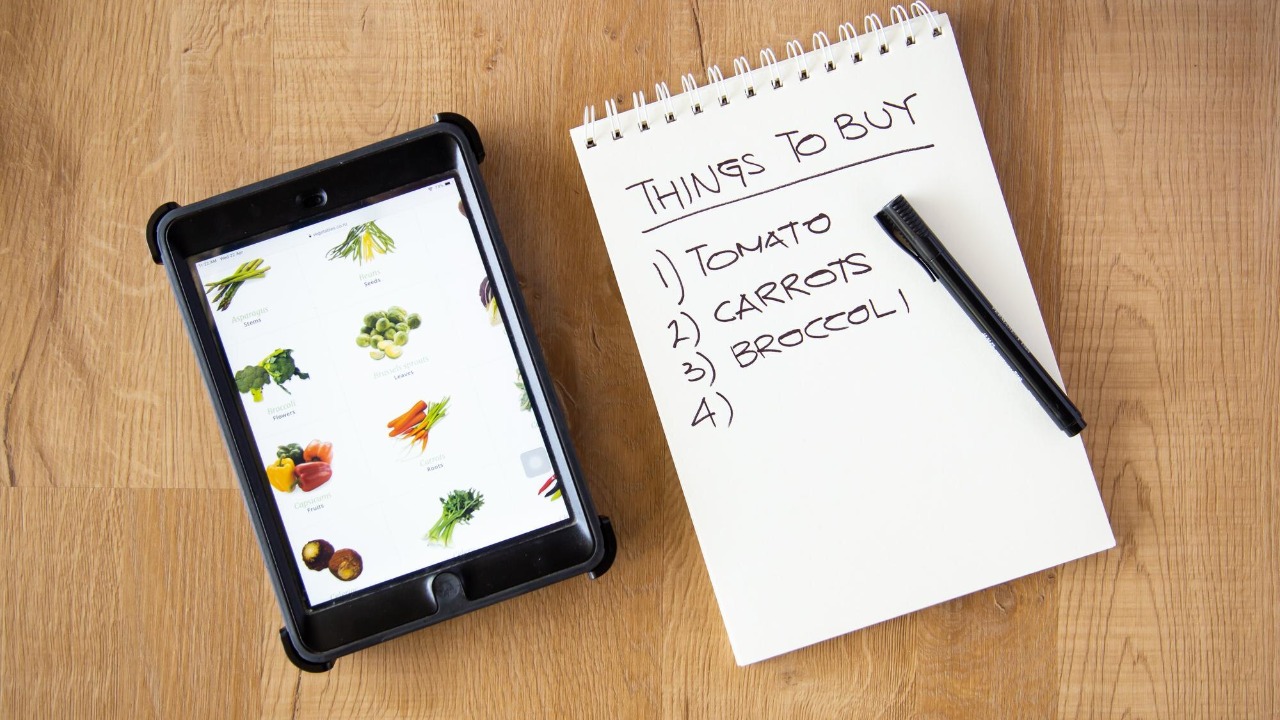 Asparagus
Stems
Broccoli
Flowers
Capsicums
Fruits
Beans
Seeds
Brussels sprouts
Leaves
Carrots
Roots
THINGS TO BUY
1) TOMATO
2) CARROTS
3) BROCCOLI
4)